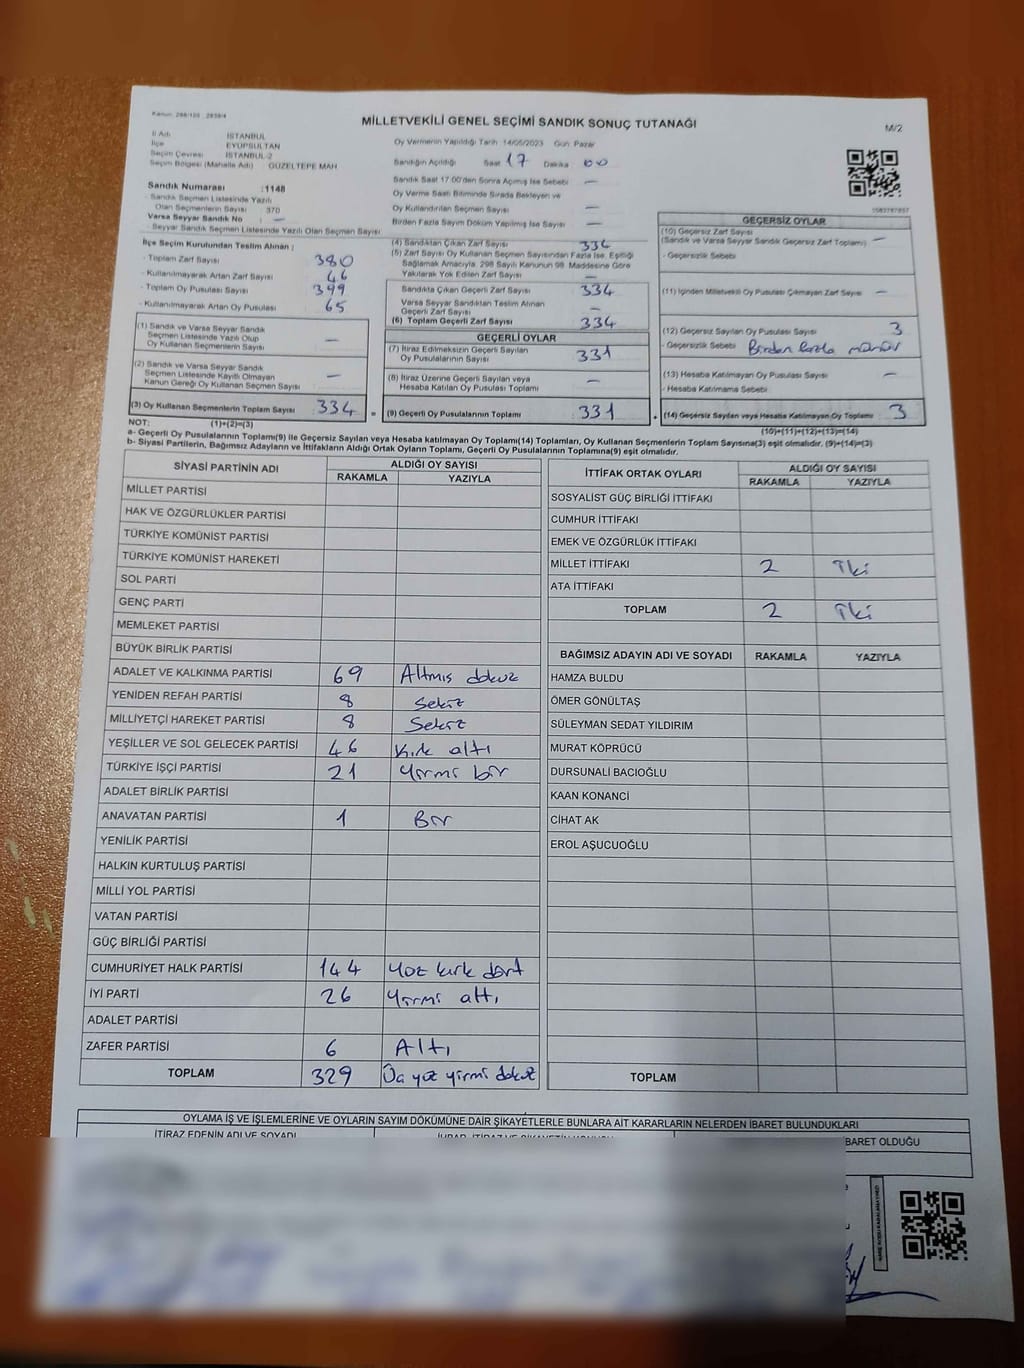 MİLLETVEKİLİ GENEL SEÇİMİ SANDIK SONUÇ TUTANAĞI
M/2
İl Adı İSTANBUL
İlçe EYÜPSULTAN
Seçim Çevresi İSTANBUL-2
Seçim Bölgesi (Mahalle Adı) GÜZELTEPE MAH
Sandık Numarası :1148
- Sandık Seçmen Listesinde Yazılı
Olan Seçmenlerin Sayısı 370
Varsa Seyyar Sandık No : —
- Seyyar Sandık Seçmen Listesinde Yazılı Olan Seçmen Sayısı
Oy Vermenin Yapıldığı Tarih 14/05/2023 Gün: Pazar
Sandığın Açıldığı Saat 17 Dakika 00
Sandık Saat 17:00'den Sonra Açılmış İse Sebebi —
Oy Verme Saati Bitiminde Sırada Bekleyen ve
Oy Kullandırılan Seçmen Sayısı —
Birden Fazla Sayım Döküm Yapılmış İse Sayısı —
İlçe Seçim Kurulundan Teslim Alınan ;
- Toplam Zarf Sayısı 380
- Kullanılmayarak Artan Zarf Sayısı 46
- Toplam Oy Pusulası Sayısı 399
- Kullanılmayarak Artan Oy Pusulası 65
(1) Sandık ve Varsa Seyyar Sandık
Seçmen Listesinde Yazılı Olup
Oy Kullanan Seçmenlerin Sayısı —
(2) Sandık ve Varsa Seyyar Sandık
Seçmen Listesinde Kayıtlı Olmayan
Kanun Gereği Oy Kullanan Seçmen Sayısı —
(3) Oy Kullanan Seçmenlerin Toplam Sayısı 334 =
(4) Sandıktan Çıkan Zarf Sayısı 334
(5) Zarf Sayısı Oy Kullanan Seçmen Sayısından Fazla İse, Eşitliği
Sağlamak Amacıyla, 298 Sayılı Kanunun 98. Maddesine Göre
Yakılarak Yok Edilen Zarf Sayısı —
Sandıkta Çıkan Geçerli Zarf Sayısı 334
Varsa Seyyar Sandıktan Teslim Alınan
Geçerli Zarf Sayısı —
(6) Toplam Geçerli Zarf Sayısı 334
GEÇERLİ OYLAR
(7) İtiraz Edilmeksizin Geçerli Sayılan
Oy Pusulalarının Sayısı 331
(8) İtiraz Üzerine Geçerli Sayılan veya
Hesaba Katılan Oy Pusulası Toplamı —
(9) Geçerli Oy Pusulalarının Toplamı 331 +
GEÇERSİZ OYLAR
(10) Geçersiz Zarf Sayısı
(Sandık ve Varsa Seyyar Sandık Geçersiz Zarf Toplamı) —
- Geçersizlik Sebebi
(11) İçinden Milletvekili Oy Pusulası Çıkmayan Zarf Sayısı —
(12) Geçersiz Sayılan Oy Pusulası Sayısı 3
- Geçersizlik Sebebi Birden fazla mühür
(13) Hesaba Katılmayan Oy Pusulası Sayısı —
- Hesaba Katılmama Sebebi
(14) Geçersiz Sayılan veya Hesaba Katılmayan Oy Toplamı 3
NOT: (1)+(2)=(3) (10)+(11)+(12)+(13)=(14)
a- Geçerli Oy Pusulalarının Toplamı(9) ile Geçersiz Sayılan veya Hesaba katılmayan Oy Toplamı(14) Toplamları, Oy Kullanan Seçmenlerin Toplam Sayısına(3) eşit olmalıdır. (9)+(14)=(3)
b- Siyasi Partilerin, Bağımsız Adayların ve İttifakların Aldığı Ortak Oyların Toplamı, Geçerli Oy Pusulalarının Toplamına(9) eşit olmalıdır.
SİYASİ PARTİNİN ADI ALDIĞI OY SAYISI
RAKAMLA YAZIYLA
MİLLET PARTİSİ
HAK VE ÖZGÜRLÜKLER PARTİSİ
TÜRKİYE KOMÜNİST PARTİSİ
TÜRKİYE KOMÜNİST HAREKETİ
SOL PARTİ
GENÇ PARTİ
MEMLEKET PARTİSİ
BÜYÜK BİRLİK PARTİSİ
ADALET VE KALKINMA PARTİSİ 69 Altmış dokuz
YENİDEN REFAH PARTİSİ 8 Sekiz
MİLLİYETÇİ HAREKET PARTİSİ 8 Sekiz
YEŞİLLER VE SOL GELECEK PARTİSİ 46 Kırk altı
TÜRKİYE İŞÇİ PARTİSİ 21 Yirmi bir
ADALET BİRLİK PARTİSİ
ANAVATAN PARTİSİ 1 Bir
YENİLİK PARTİSİ
HALKIN KURTULUŞ PARTİSİ
MİLLİ YOL PARTİSİ
VATAN PARTİSİ
GÜÇ BİRLİĞİ PARTİSİ
CUMHURİYET HALK PARTİSİ 144 Yüz kırk dört
İYİ PARTİ 26 Yirmi altı
ADALET PARTİSİ
ZAFER PARTİSİ 6 Altı
TOPLAM 329 Üç yüz yirmi dokuz
İTTİFAK ORTAK OYLARI ALDIĞI OY SAYISI
RAKAMLA YAZIYLA
SOSYALİST GÜÇ BİRLİĞİ İTTİFAKI
CUMHUR İTTİFAKI
EMEK VE ÖZGÜRLÜK İTTİFAKI
MİLLET İTTİFAKI 2 İki
ATA İTTİFAKI
TOPLAM 2 İki
BAĞIMSIZ ADAYIN ADI VE SOYADI RAKAMLA YAZIYLA
HAMZA BULDU
ÖMER GÖNÜLTAŞ
SÜLEYMAN SEDAT YILDIRIM
MURAT KÖPRÜCÜ
DURSUNALİ BACIOĞLU
KAAN KONANCİ
CİHAT AK
EROL AŞUCUOĞLU
TOPLAM
OYLAMA İŞ VE İŞLEMLERİNE VE OYLARIN SAYIM DÖKÜMÜNE DAİR ŞİKAYETLERLE BUNLARA AİT KARARLARIN NELERDEN İBARET BULUNDUKLARI
İTİRAZ EDENİN ADI VE SOYADI
BARET OLDUĞU